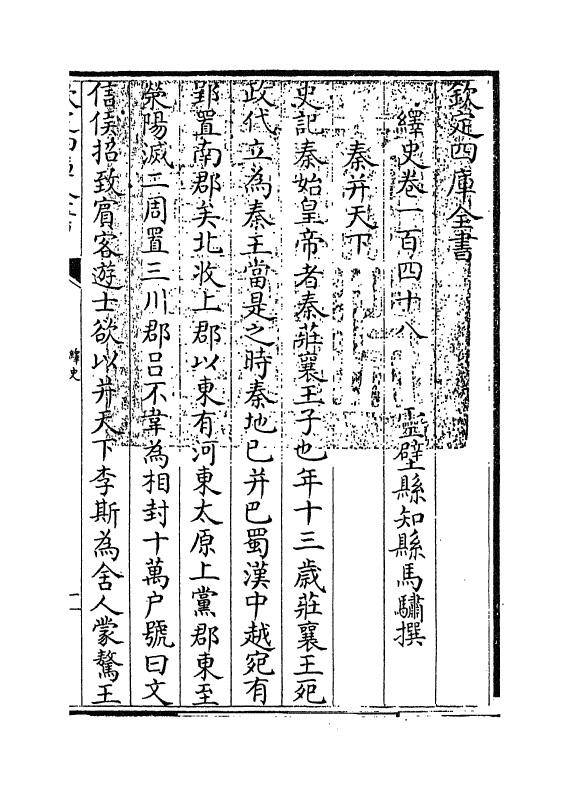 欽定四庫全書
繹史卷一百四十八　靈壁縣知縣馬驌撰
秦并天下
史記秦始皇帝者秦莊襄王子也年十三歲莊襄王死
政代立為秦王當是之時秦地已并巴蜀漢中越宛有
郢置南郡矣北收上郡以東有河東太原上黨郡東至
滎陽滅二周置三川郡吕不韋為相封十萬户號曰文
信侯招致賓客遊士欲以并天下李斯為舍人蒙驁王
繹史